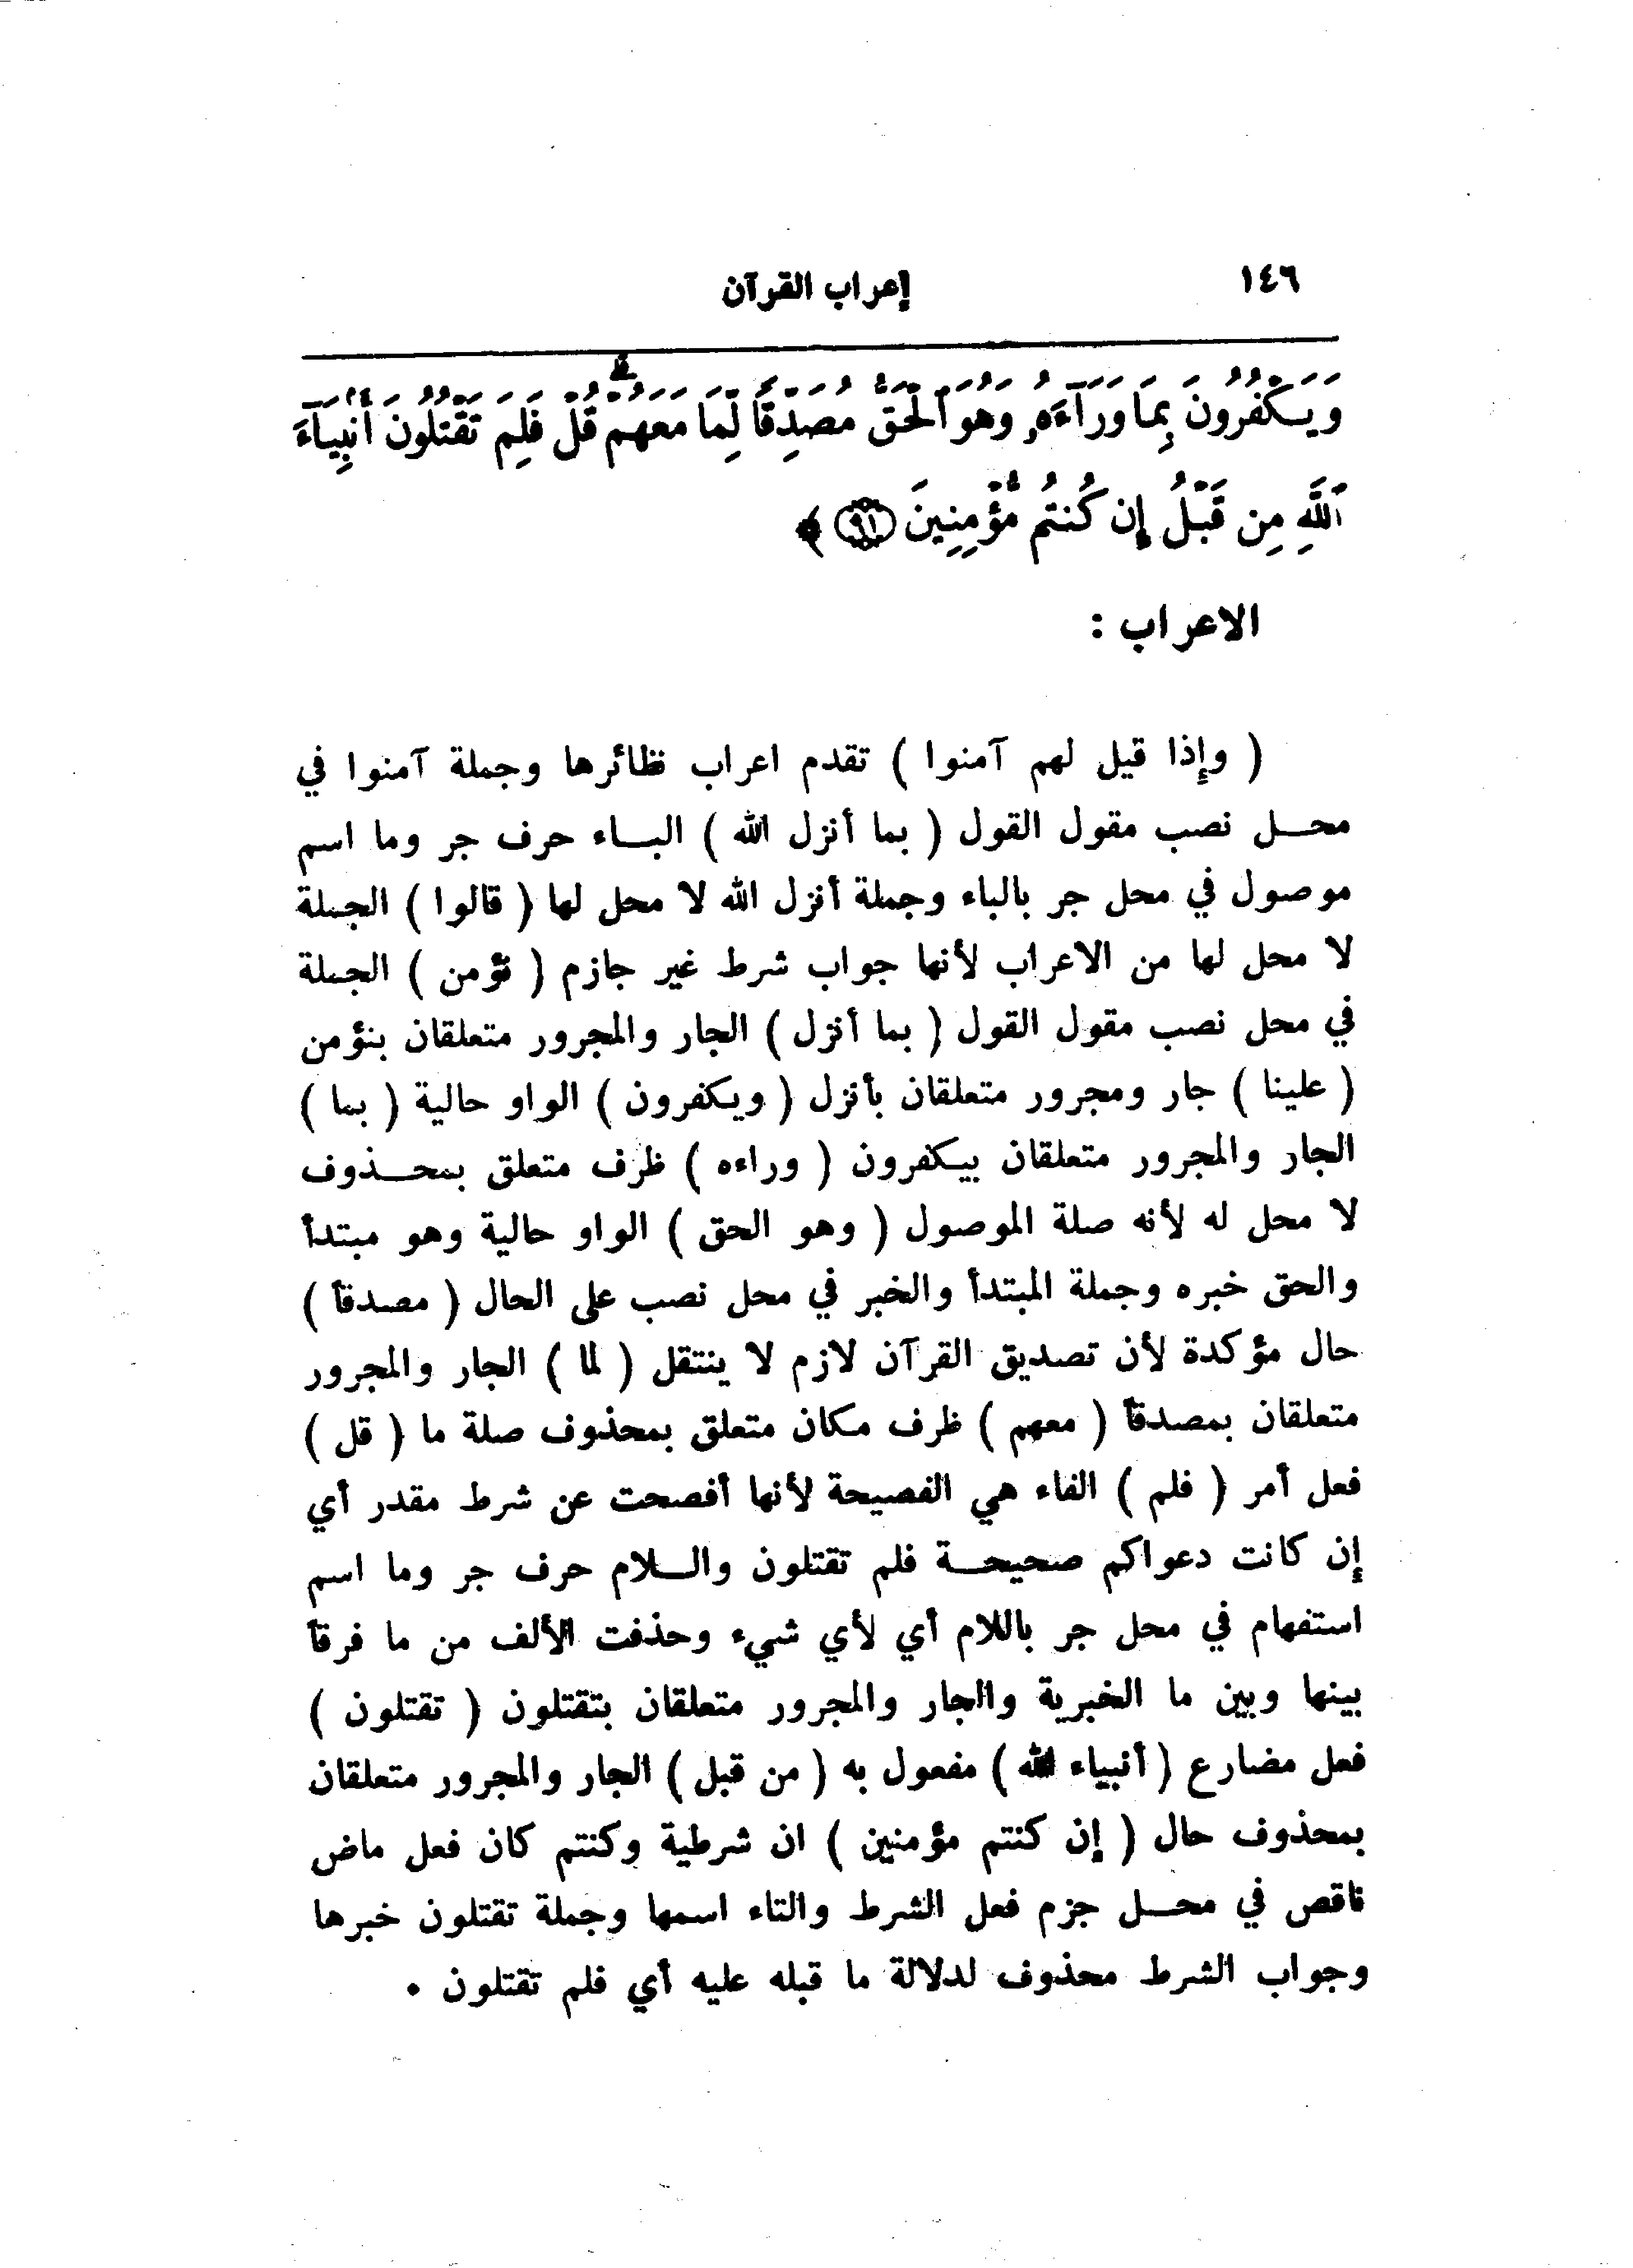 ١٤٦
إعراب القرآن
وَيَكْفُرُونَ بِمَا وَرَآءَهُۥ وَهُوَ ٱلْحَقُّ مُصَدِّقًا لِّمَا مَعَهُمْ ۗ قُلْ فَلِمَ تَقْتُلُونَ أَنۢبِيَآءَ
ٱللَّهِ مِن قَبْلُ إِن كُنتُم مُّؤْمِنِينَ ﴿٩١﴾ ﴾
الاعراب :
( وإذا قيل لهم آمنوا ) تقدم اعراب نظائرها وجملة آمنوا في
محـــل نصب مقول القول ( بما أنزل الله ) البـــاء حرف جر وما اسم
موصول في محل جر بالباء وجملة أنزل الله لا محل لها ( قالوا ) الجملة
لا محل لها من الاعراب لأنها جواب شرط غير جازم ( نؤمن ) الجملة
في محل نصب مقول القول ( بما أنزل ) الجار والمجرور متعلقان بنؤمن
( علينا ) جار ومجرور متعلقان بأنزل ( ويكفرون ) الواو حالية ( بما )
الجار والمجرور متعلقان بيكفرون ( وراءه ) ظرف متعلق بمحـــذوف
لا محل له لأنه صلة الموصول ( وهو الحق ) الواو حالية وهو مبتدأ
والحق خبره وجملة المبتدأ والخبر في محل نصب على الحال ( مصدقاً )
حال مؤكدة لأن تصديق القرآن لازم لا ينتقل ( لما ) الجار والمجرور
متعلقان بمصدقاً ( معهم ) ظرف مكان متعلق بمحذوف صلة ما ( قل )
فعل أمر ( فلم ) الفاء هي الفصيحة لأنها أفصحت عن شرط مقدر أي
إن كانت دعواكم صحيحـــة فلم تقتلون والـــلام حرف جر وما اسم
استفهام في محل جر باللام أي لأي شيء وحذفت الألف من ما فرقاً
بينها وبين ما الخبرية والجار والمجرور متعلقان بتقتلون ( تقتلون )
فعل مضارع ( أنبياء الله ) مفعول به ( من قبل ) الجار والمجرور متعلقان
بمحذوف حال ( إن كنتم مؤمنين ) ان شرطية وكنتم كان فعل ماض
ناقص في محـــل جزم فعل الشرط والتاء اسمها وجملة تقتلون خبرها
وجواب الشرط محذوف لدلالة ما قبله عليه أي فلم تقتلون ٠